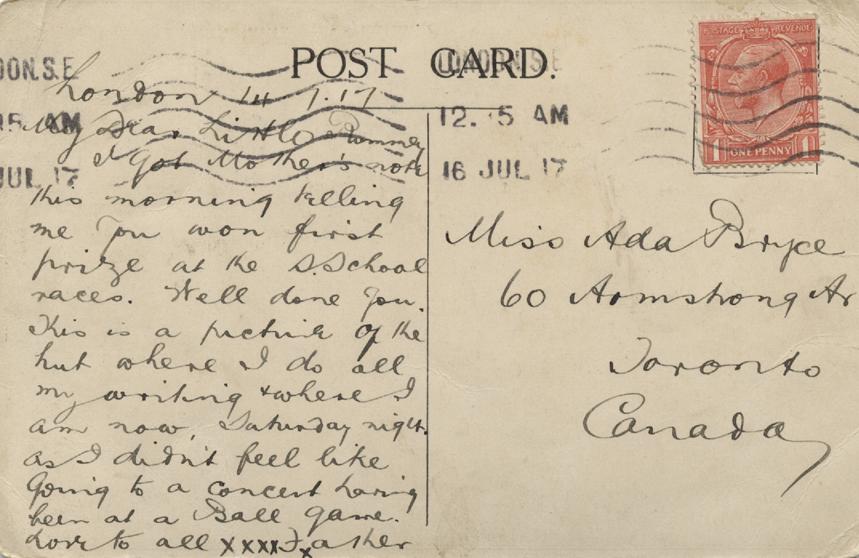 POST CARD.
LONDON. S.E.
12. 15 AM
16 JUL 17
DON. S.E
15 AM
JUL 17
POSTAGE REVENUE
1 ONE PENNY 1
London 14.7.17
My Dear Little
I Got Mother's note
this morning telling
me you won first
prize at the S. School
races. Well done you.
This is a picture of the
hut where I do all
my writing & where I
am now, Saturday night.
as I didn't feel like
Going to a concert having
been at a Ball Game.
Love to all xxxx Father
x
Miss Ada Bryce
60 Armstrong Av
Toronto
Canada